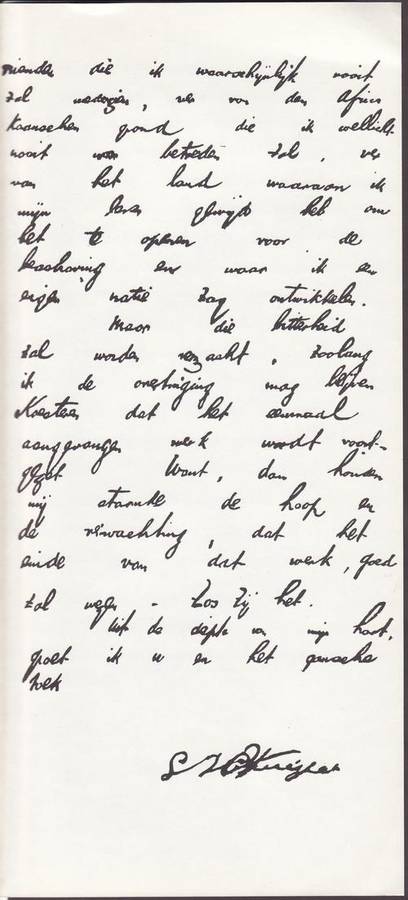 vrienden die ik waarschijnlijk nooit
zal weerzien, ver van den Afrika
kaanschen grond die ik wellicht
nooit meer betreden zal, ver
van het land waaraan ik
mijn leven gewijd heb om
het te openen voor de
beschaving en waar ik een
eigen natie zag ontwikkelen.
Maar die bitterheid
zal worden verzacht, zoolang
ik de overtuiging mag blijven
koesteren dat het eenmaal
aangevangen werk wordt voort-
gezet. Want, dan houden
mij staande de hoop en
de verwachting, dat het
einde van dat werk, goed
zal wezen - Zoo Zij het.
Uit de diepte van mijn hart,
groet ik u en het gansche
volk
S J P Kruger